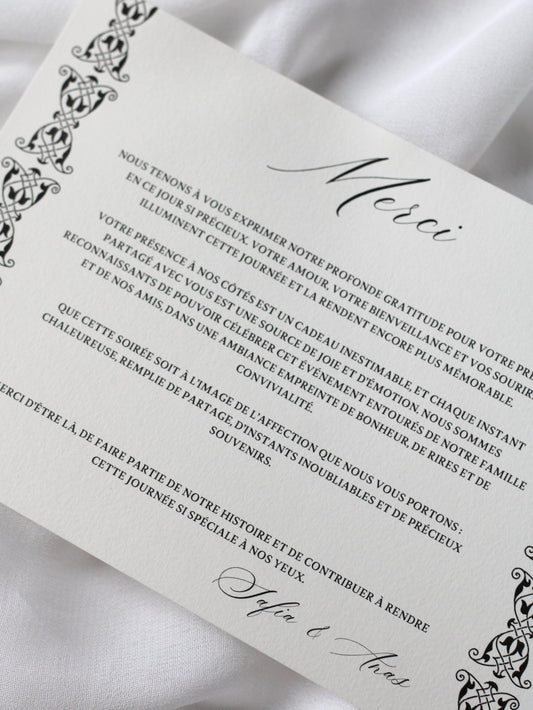 Merci
NOUS TENONS À VOUS EXPRIMER NOTRE PROFONDE GRATITUDE POUR VOTRE
EN CE JOUR SI PRÉCIEUX. VOTRE AMOUR, VOTRE BIENVEILLANCE ET VOS
ILLUMINENT CETTE JOURNÉE ET LA RENDENT ENCORE PLUS MÉMORABLE.
VOTRE PRÉSENCE À NOS CÔTÉS EST UN CADEAU INESTIMABLE, ET CHAQUE INSTANT
PARTAGÉ AVEC VOUS EST UNE SOURCE DE JOIE ET D'ÉMOTION. NOUS SOMMES
RECONNAISSANTS DE POUVOIR CÉLÉBRER CET ÉVÉNEMENT ENTOURÉS DE NOTRE FAMILLE
ET DE NOS AMIS, DANS UNE AMBIANCE EMPREINTE DE BONHEUR, DE RIRES ET DE
CONVIVIALITÉ.
QUE CETTE SOIRÉE SOIT À L'IMAGE DE L'AFFECTION QUE NOUS VOUS PORTONS :
CHALEUREUSE, REMPLIE DE PARTAGE, D'INSTANTS INOUBLIABLES ET DE PRÉCIEUX
SOUVENIRS.
MERCI D'ÊTRE LÀ, DE FAIRE PARTIE DE NOTRE HISTOIRE ET DE CONTRIBUER À RENDRE
CETTE JOURNÉE SI SPÉCIALE À NOS YEUX.
Safia & Anas